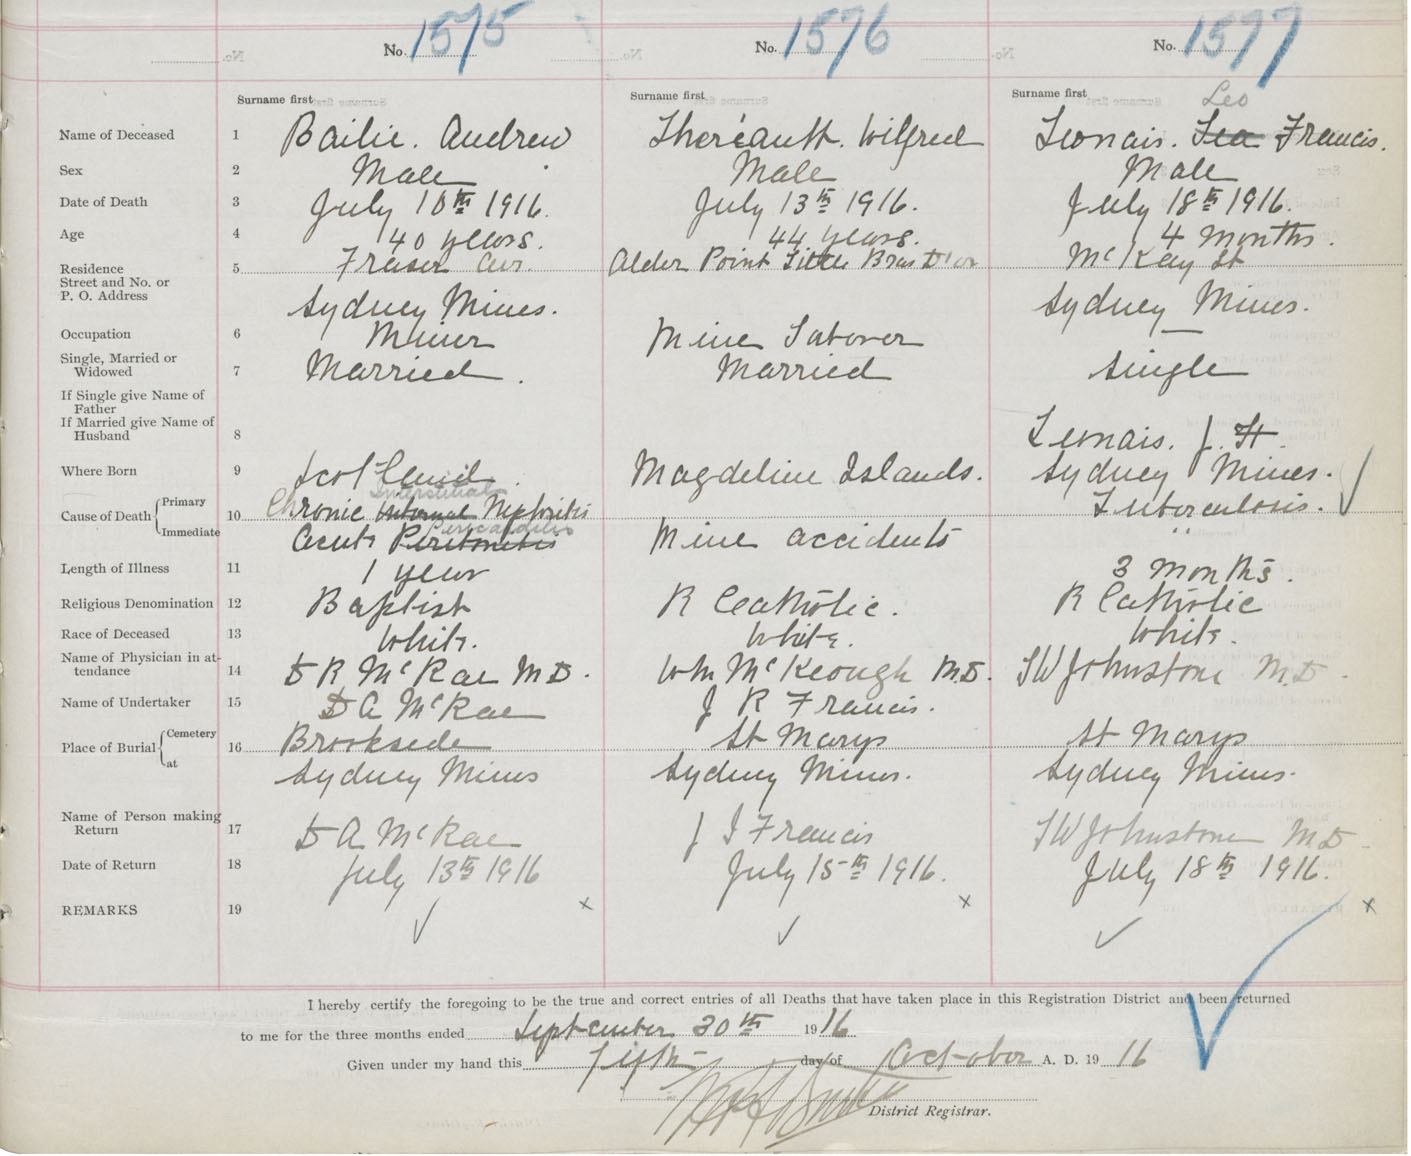 No. 1575 No. 1576 No. 1577
Surname first Surname first Surname first
Leo
Name of Deceased 1 Bailie. Andrew Theréault. Wilfred Leonais. Lea Francis.
Sex 2 Male Male Male
Date of Death 3 July 10th 1916. July 13th 1916. July 18th 1916.
Age 4 40 years. 44 years. 4 months.
Residence 5 Fraser Ave. Alder Point Little Bras D'or McKay St
Street and No. or
P. O. Address Sydney Mines. Sydney Mines.
Occupation 6 Miner Mine Laborer —
Single, Married or
Widowed 7 Married. Married Single
If Single give Name of
Father
If Married give Name of
Husband 8 Leonais. J. H.
Where Born 9 Scotland. Magdeline Islands. Sydney Mines.
Interstitial
Cause of Death Primary 10 Chronic Internal Nephritis Tuberculosis.
Pericarditis
Immediate Acute Peritonitis Mine accidents "
Length of Illness 11 1 year 3 months.
Religious Denomination 12 Baptist R Catholic. R Catholic
Race of Deceased 13 White. White. White.
Name of Physician in at-
tendance 14 D R McRae MD. Wm McKeough M.D. T W Johnstone M.D.
Name of Undertaker 15 D A McRae J R Francis.
Place of Burial Cemetery 16 Brookside St Marys St Marys
at Sydney Mines Sydney Mines. Sydney Mines.
Name of Person making
Return 17 D A McRae J J Francis T W Johnstone MD
Date of Return 18 July 13th 1916 July 15th 1916. July 18th 1916.
REMARKS 19 x x x
I hereby certify the foregoing to be the true and correct entries of all Deaths that have taken place in this Registration District and been returned
to me for the three months ended September 30th 1916
Given under my hand this fifth day of October A. D. 1916
District Registrar.